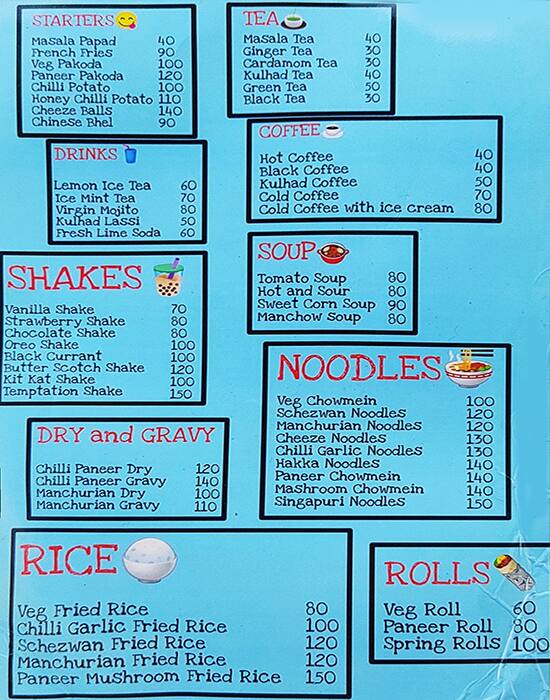 STARTERS
Masala Papad 40
French Fries 90
Veg Pakoda 100
Paneer Pakoda 120
Chilli Potato 100
Honey Chilli Potato 110
Cheeze Balls 140
Chinese Bhel 90
TEA
Masala Tea 40
Ginger Tea 30
Cardamom Tea 30
Kulhad Tea 40
Green Tea 50
Black Tea 30
COFFEE
Hot Coffee 40
Black Coffee 40
Kulhad Coffee 50
Cold Coffee 70
Cold Coffee with ice cream 80
DRINKS
Lemon Ice Tea 60
Ice Mint Tea 70
Virgin Mojito 80
Kulhad Lassi 50
Fresh Lime Soda 60
SOUP
Tomato Soup 80
Hot and Sour 80
Sweet Corn Soup 90
Manchow Soup 80
SHAKES
Vanilla Shake 70
Strawberry Shake 80
Chocolate Shake 80
Oreo Shake 100
Black Currant 100
Butter Scotch Shake 120
Kit Kat Shake 100
Temptation Shake 150
NOODLES
Veg Chowmein 100
Schezwan Noodles 120
Manchurian Noodles 120
Cheeze Noodles 130
Chilli Garlic Noodles 130
Hakka Noodles 140
Paneer Chowmein 140
Mashroom Chowmein 140
Singapuri Noodles 150
DRY and GRAVY
Chilli Paneer Dry 120
Chilli Paneer Gravy 140
Manchurian Dry 100
Manchurian Gravy 110
RICE
Veg Fried Rice 80
Chilli Garlic Fried Rice 100
Schezwan Fried Rice 120
Manchurian Fried Rice 120
Paneer Mushroom Fried Rice 150
ROLLS
Veg Roll 60
Paneer Roll 80
Spring Rolls 100